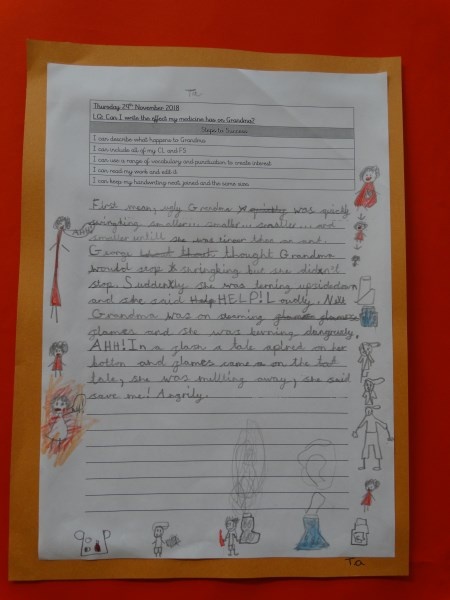 Ta
Thursday 29th November 2018
LQ: Can I write the effect my medicine has on Grandma?
Steps to Success
I can describe what happens to Grandma
I can include all of my CL and FS
I can use a range of vocabulary and punctuation to create interest
I can read my work and edit it
I can keep my handwriting neat, joined and the same size.
First mean, ugly Grandma quickly was quickly
swingking smaller... smaller... smaller... and
smaller untill she was tineer then an ant.
George thought Grandma
would stop swringking but she dident
stop. Suddenly she was terning upsidedown
and she said Help HELP! Loudly. Next
Grandma was on
flames and she was burning dangrusly.
AHH! In a flash a tale apired on her
bottom and flames came on the
tale, she was mellting away, she said
save me! Angrily.
Ta